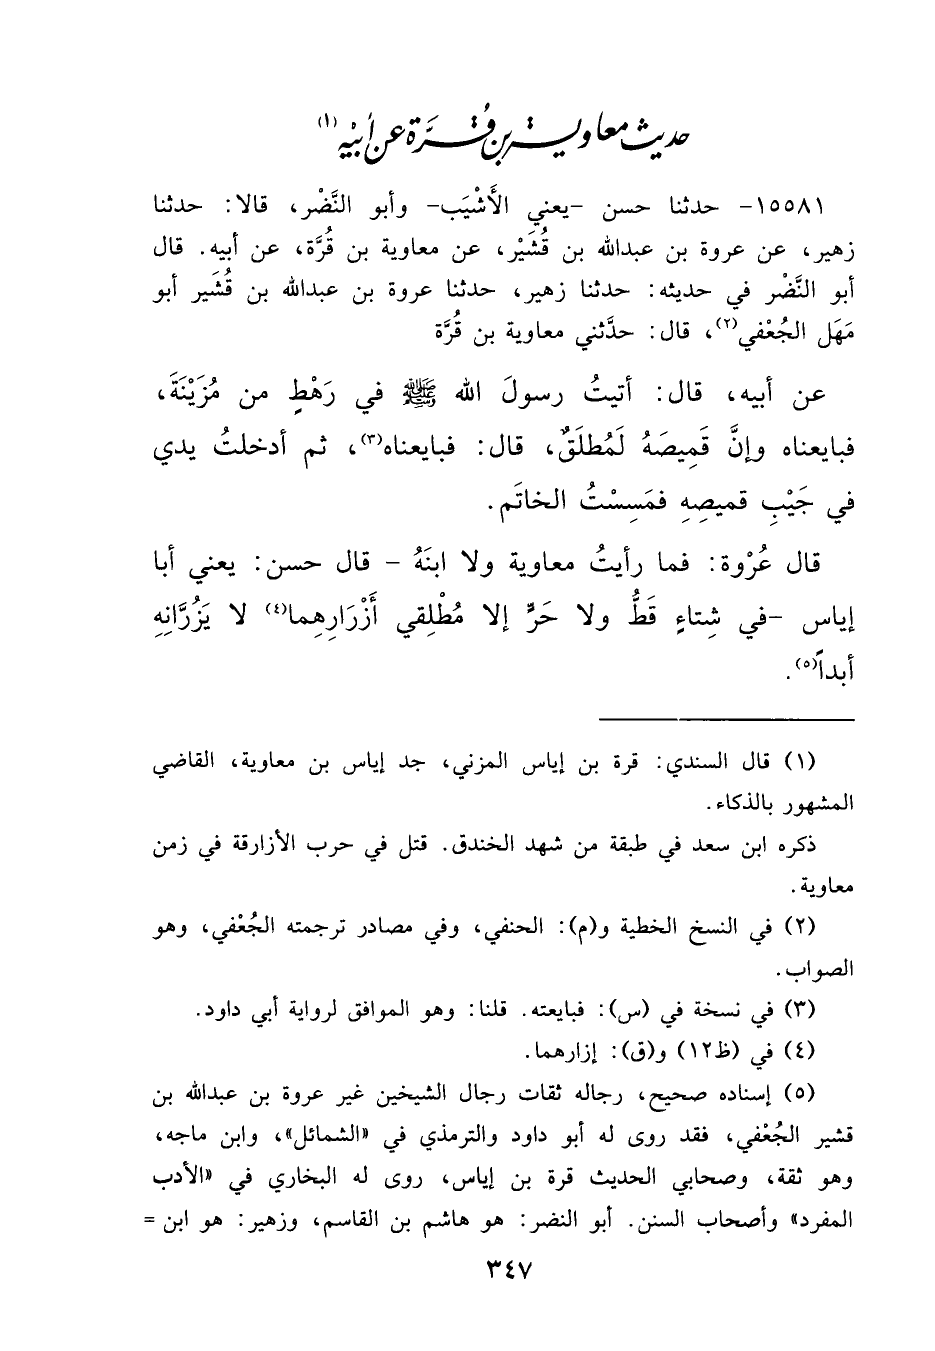 حديث معاوية بن قُرَّة عن أبيْه (١)
١٥٥٨١- حدثنا حسن -يعني الأَشْيَب- وأبو النَّضْر، قالا: حدثنا
زهير، عن عروة بن عبدالله بن قُشَيْر، عن معاوية بن قُرَّة، عن أبيه. قال
أبو النَّضْر في حديثه: حدثنا زهير، حدثنا عروة بن عبدالله بن قُشَير أبو
مَهَل الجُعْفي(٢)، قال: حدَّثني معاوية بن قُرَّة
عن أبيه، قال: أتيتُ رسولَ الله ﷺ في رَهْطٍ من مُزَيْنَةَ،
فبايعناه وإنَّ قَمِيصَهُ لَمُطلَقٌ، قال: فبايعناه(٣)، ثم أدخلتُ يدي
في جَيْبِ قميصِهِ فمَسِسْتُ الخاتَم.
قال عُرْوة: فما رأيتُ معاوية ولا ابنَهُ - قال حسن: يعني أبا
إياس -في شِتاءٍ قَطُّ ولا حَرٍّ إلا مُطْلِقي أَزْرَارِهِما(٤) لا يَزُرَّانِهِ
أبداً(٥).
(١) قال السندي: قرة بن إياس المزني، جد إياس بن معاوية، القاضي
المشهور بالذكاء.
ذكره ابن سعد في طبقة من شهد الخندق. قتل في حرب الأزارقة في زمن
معاوية.
(٢) في النسخ الخطية و(م): الحنفي، وفي مصادر ترجمته الجُعْفي، وهو
الصواب.
(٣) في نسخة في (س): فبايعته. قلنا: وهو الموافق لرواية أبي داود.
(٤) في (ظ١٢) و(ق): إزارهما.
(٥) إسناده صحيح، رجاله ثقات رجال الشيخين غير عروة بن عبدالله بن
قشير الجُعْفي، فقد روى له أبو داود والترمذي في «الشمائل»، وابن ماجه،
وهو ثقة، وصحابي الحديث قرة بن إياس، روى له البخاري في «الأدب
المفرد» وأصحاب السنن. أبو النضر: هو هاشم بن القاسم، وزهير: هو ابن =
٣٤٧